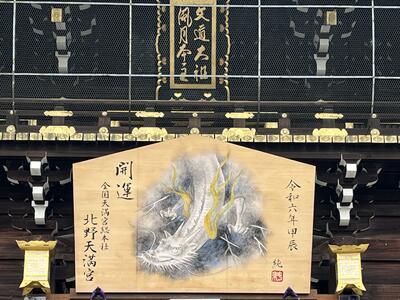 文道大祖
風月本主
令和六年甲辰
純
開運
全国天満宮総本社
北野天満宮